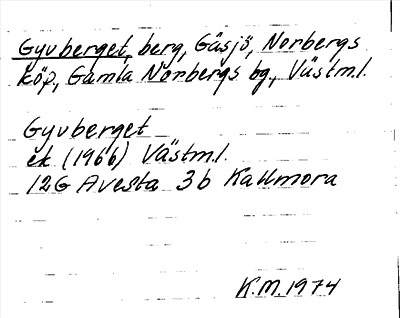 Gyvberget, berg, Gäsjö, Norbergs
köp., Gamla Norbergs bg., Västml.
Gyvberget
ek. (1966) Västml.
12G Avesta 3b Kallmora
K.M. 1974